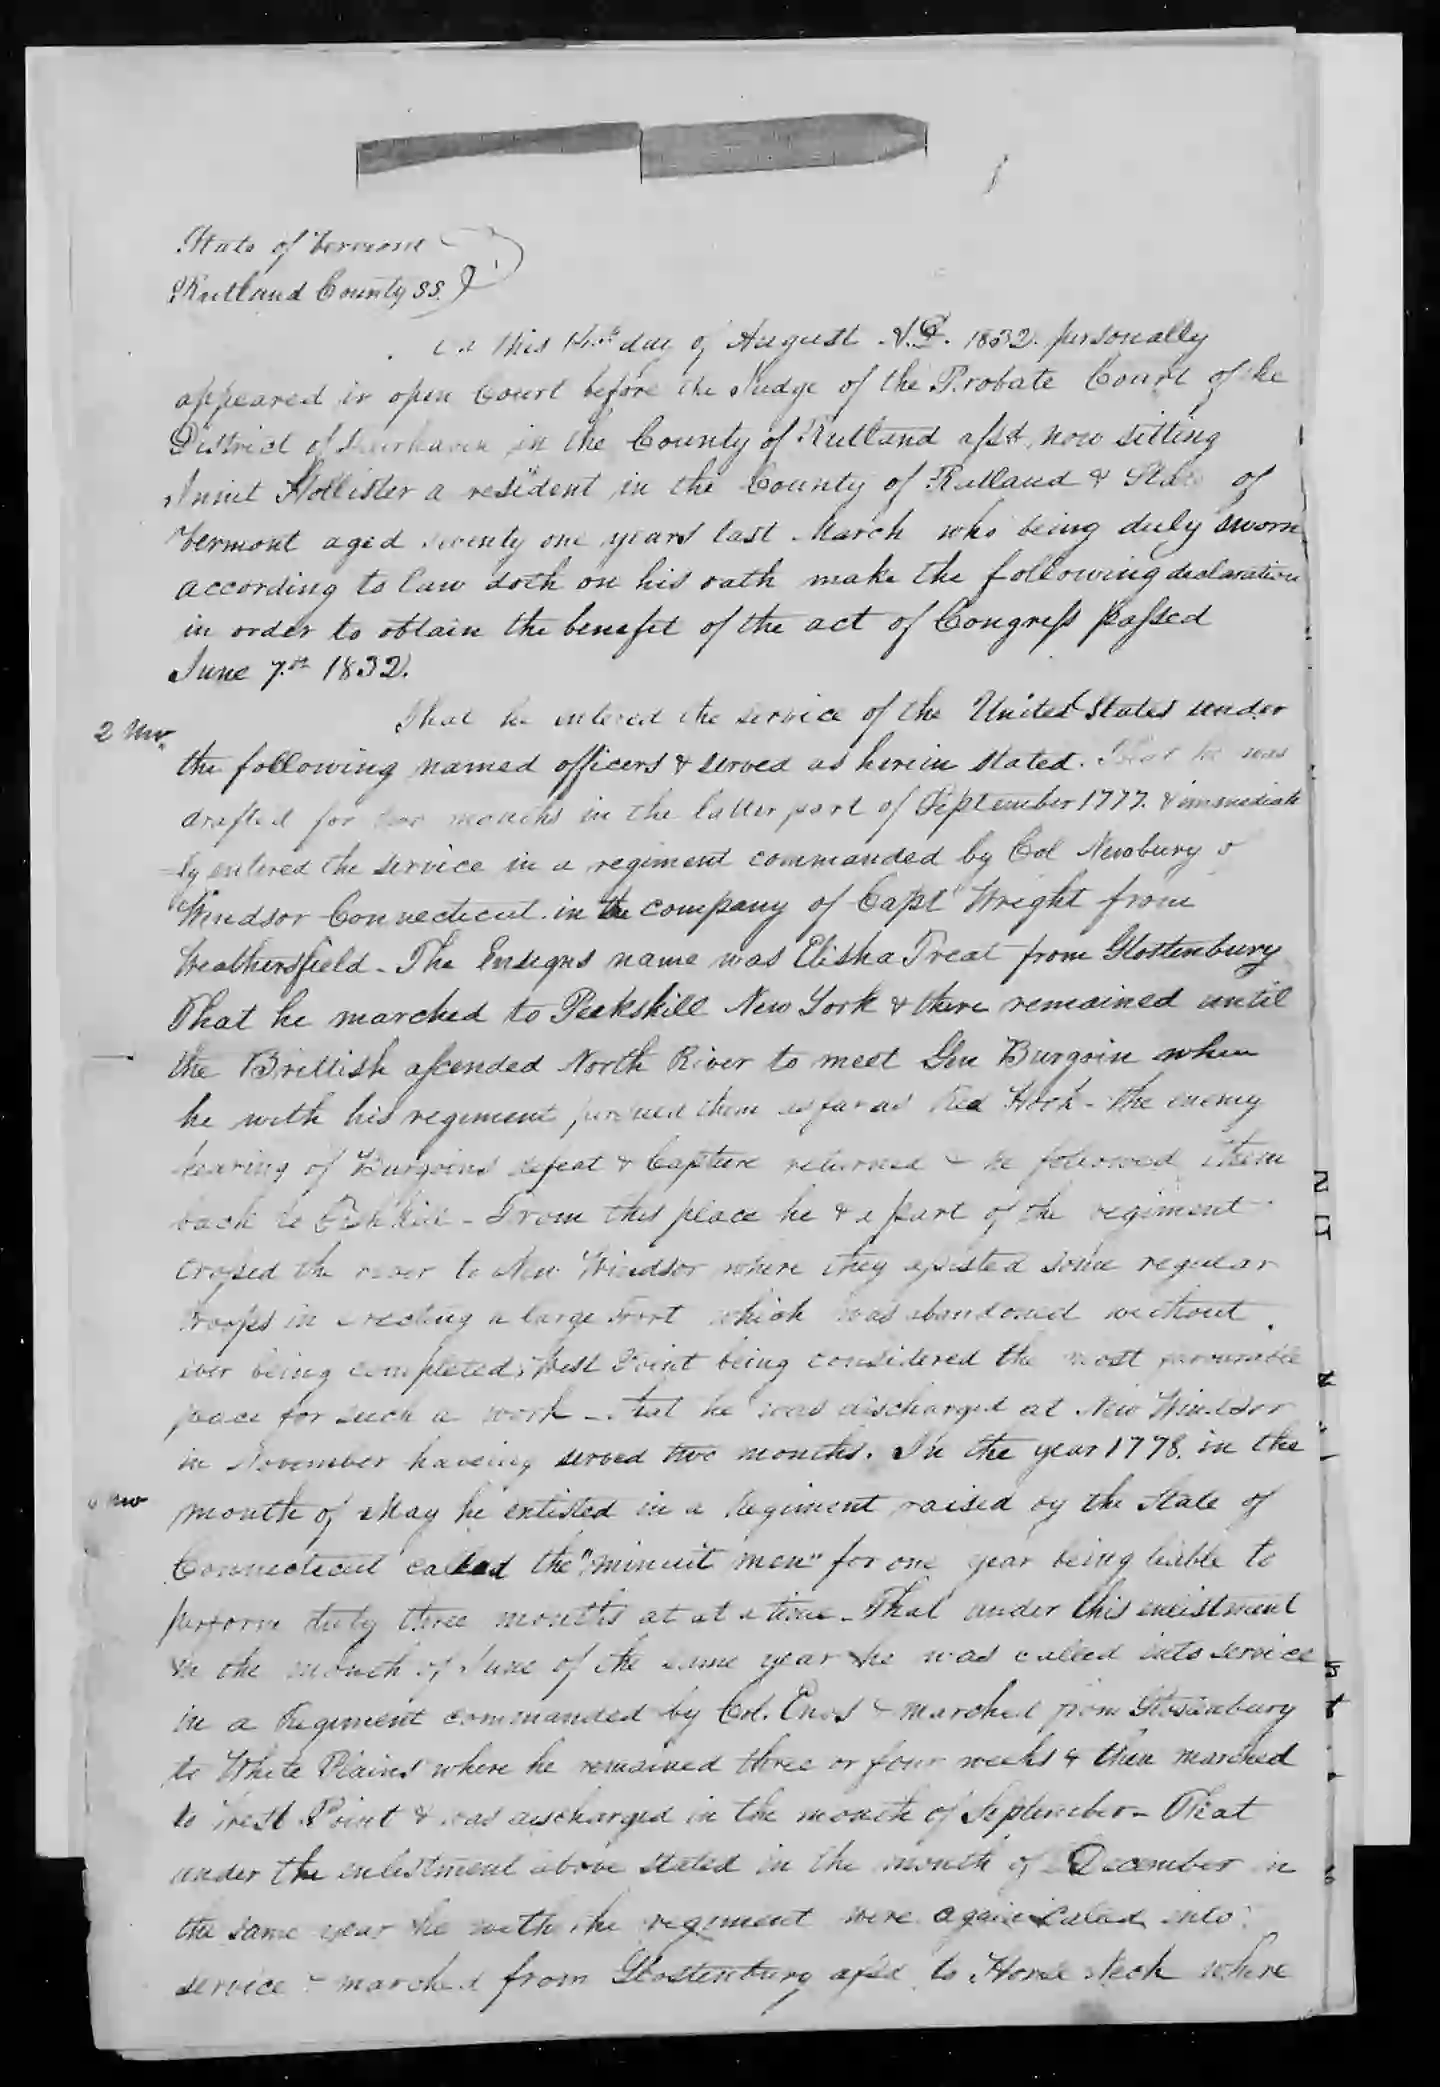 State of Vermont
Rutland County SS.
On this 14th day of August A.D. 1832. personally
appeared in open Court before the Judge of the Probate Court of the
District of Fairhaven in the County of Rutland afsd, now sitting
Innit Hollister a resident in the County of Rutland & State of
Vermont aged seventy one years last March who being duly sworn
according to law doth on his oath make the following declaration
in order to obtain the benefit of the act of Congress passed
June 7th 1832.
That he entered the service of the United States under
2 Mo.
the following named officers & served as herein stated. That he was
drafted for two months in the latter part of September 1777. & immediate
-ly entered the service in a regiment commanded by Col Newbury of
Windsor Connecticut in the company of Capt Wright from
Weathersfield - The Ensigns name was Elisha Treat from Glostenbury
That he marched to Peekskill New York & there remained until
the Brittish ascended North River to meet Gen Burgoin when
he with his regiment pursued them as far as Red Hook - the enemy
hearing of Burgoins defeat & Capture returned & he followed them
back to Fishkill - From this place he & a part of the regiment
crossed the river to New Windsor where they assisted some regular
troops in erecting a large Fort which was abandoned without
ever being completed, West Point being considered the most favourable
place for such a work - that he was discharged at New Windsor
in November haveing served two months. In the year 1778. in the
6 Mo
month of May he enlisted in a Regiment raised by the State of
Connecticut called the "minuit men" for one year being liable to
perform duty three months at at a time - That under this enlistment
in the month of June of the same year he was called into service
in a Regiment commanded by Col. Enos & marched from Glostenbury
to White Plains where he remained three or four weeks & then marched
to West Point & was discharged in the month of September - That
under the enlistment above stated in the month of December in
the same year he with the regiment were again called into
service & marched from Glostenbury afsd to Horse Neck where